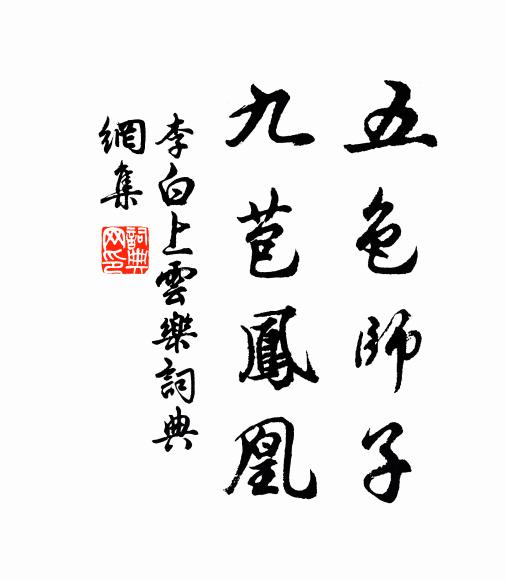 五色師子
九苞鳳凰
李白上雲樂詞典
網集
詞典
网印